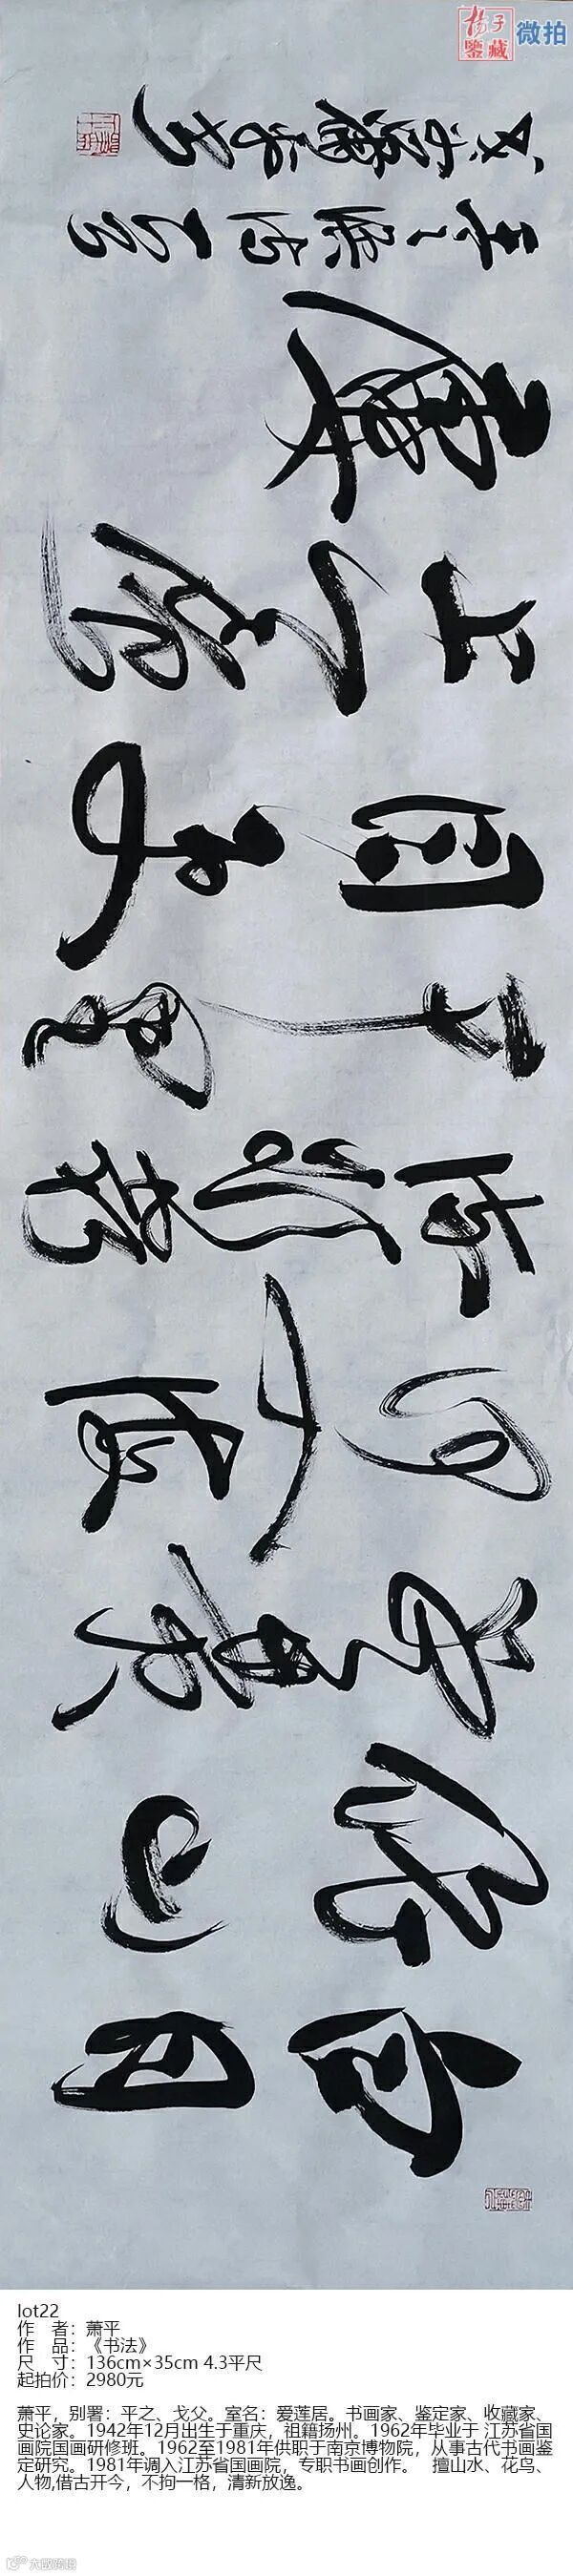 杨子
鉴藏
微拍
白日
依山
盡黄河
入海
流欲窮
千里
目更
上一層
樓
王之渙詩
蕭平书
lot22
作　者：萧平
作　品：《书法》
尺　寸：136cm×35cm 4.3平尺
起拍价：2980元
萧平，别署：平之、戈父。室名：爱莲居。书画家、鉴定家、收藏家、
史论家。1942年12月出生于重庆，祖籍扬州。1962年毕业于 江苏省国
画院国画研修班。1962至1981年供职于南京博物院，从事古代书画鉴
定研究。1981年调入江苏省国画院，专职书画创作。　擅山水、花鸟、
人物,借古开今，不拘一格，清新放逸。